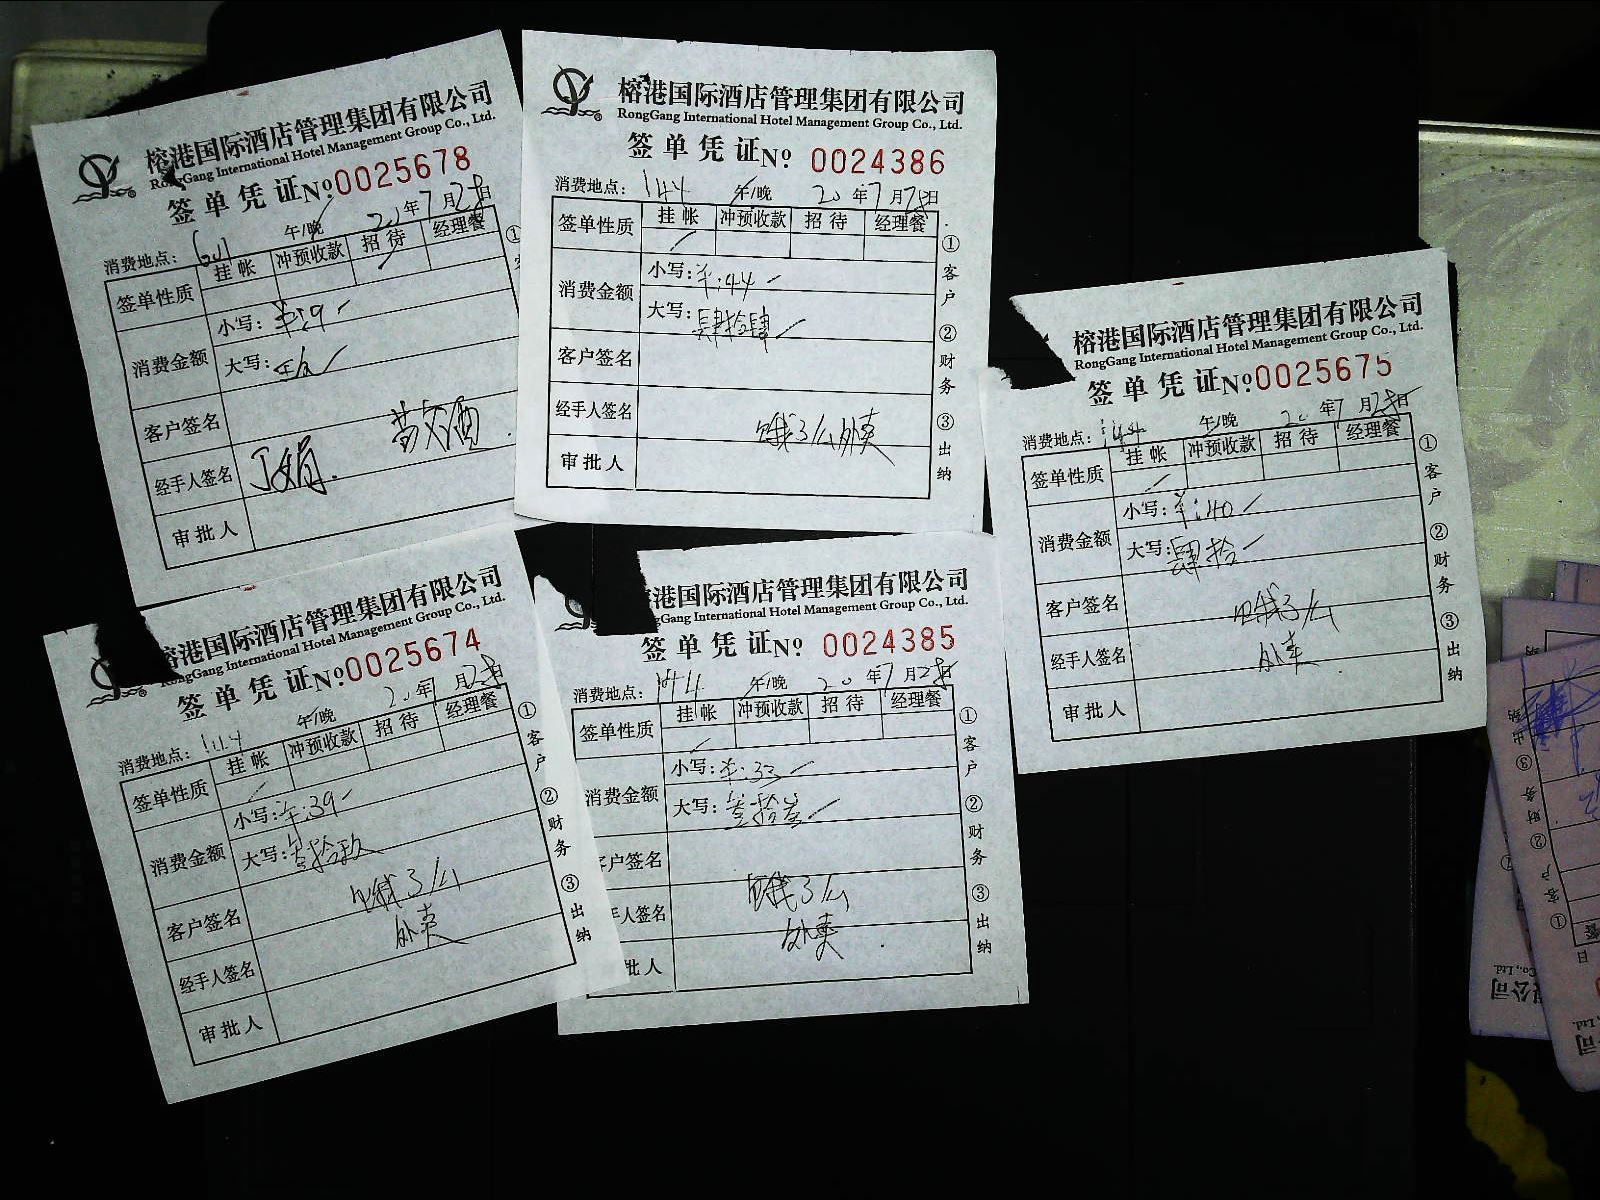 榕港国际酒店管理集团有限公司
RongGang International Hotel Management Group Co., Ltd.
签单凭证 №0025678
消费地点: 午/晚 20年7月28日
签单性质 挂帐 冲预收款 招待 经理餐
消费金额 小写: ¥:9-
大写:
客户签名
经手人签名 丁娟
审批人
①
榕港国际酒店管理集团有限公司
RongGang International Hotel Management Group Co., Ltd.
签单凭证 №0024386
消费地点: 144 午/晚 20年7月28日
签单性质 挂帐 冲预收款 招待 经理餐
消费金额 小写: ¥:44-
大写: 肆拾肆
客户签名
经手人签名 饿了么外卖
审批人
①客户 ②财务 ③出纳
榕港国际酒店管理集团有限公司
RongGang International Hotel Management Group Co., Ltd.
签单凭证 №0025675
消费地点: 144 午/晚 20年7月28日
签单性质 挂帐 冲预收款 招待 经理餐
消费金额 小写: ¥:40-
大写: 肆拾-
客户签名 饿了么
经手人签名 外卖
审批人
①客户 ②财务 ③出纳
榕港国际酒店管理集团有限公司
RongGang International Hotel Management Group Co., Ltd.
签单凭证 №0025674
消费地点: 144 午/晚 20年7月28日
签单性质 挂帐 冲预收款 招待 经理餐
消费金额 小写: ¥:39-
大写: 叁拾玖
客户签名 饿了么
经手人签名 外卖
审批人
①客户 ②财务 ③出纳
港国际酒店管理集团有限公司
RongGang International Hotel Management Group Co., Ltd.
签单凭证 №0024385
消费地点: 144 午/晚 20年7月28日
签单性质 挂帐 冲预收款 招待 经理餐
消费金额 小写: ¥:33-
大写: 叁拾叁
客户签名
手人签名 饿了么
外卖
批人
①客户 ②财务 ③出纳